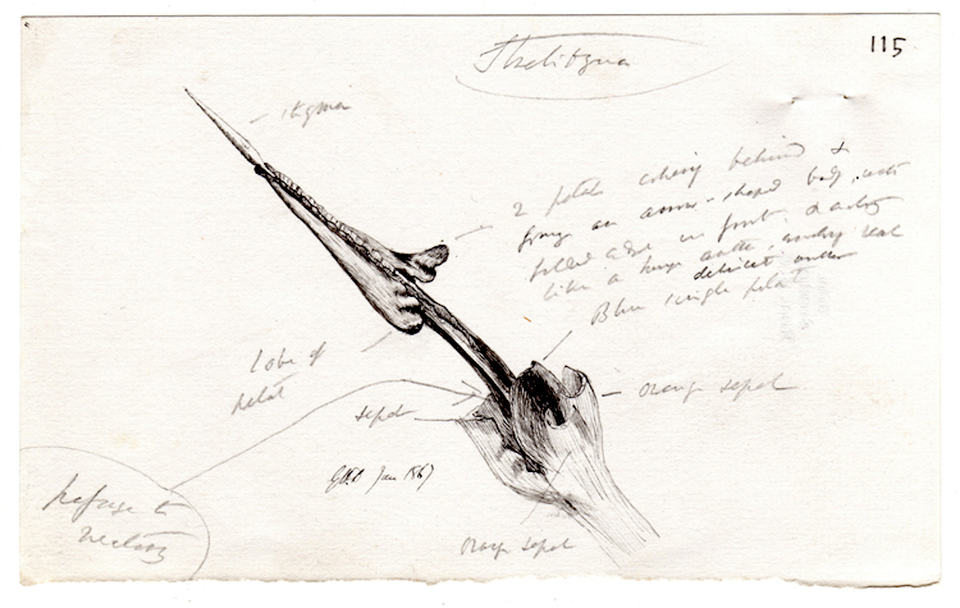 115
Strelitzia
stigma
2 petals cohering behind &
forming an arrow-shaped body, with
folded edge in front & acting
like a huge anther, anthers real
dehiscent under
Blue single petal
Lobe of
petal
sepal
orange sepal
GHD Jan 1867
passage to
nectary
orange sepal